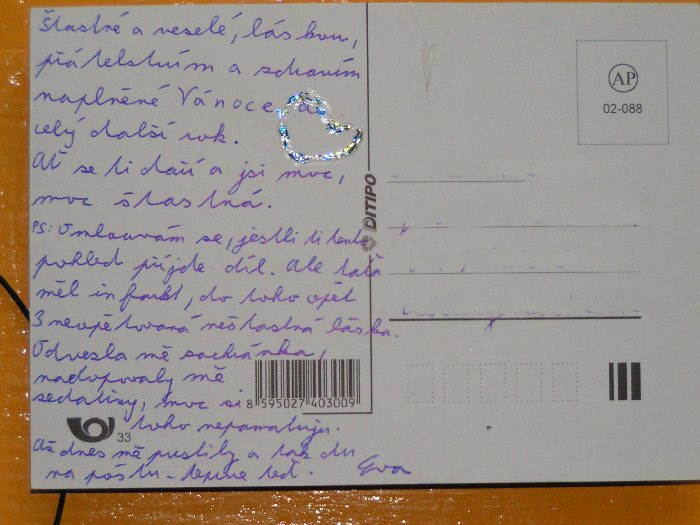 Šťastné a veselé, láskou,
přátelstvím a zdravím
naplněné Vánoce a
celý další rok.
Ať se ti daří a jsi moc,
moc šťastná.
PS: Omlouvám se, jestli ti tento
pohled přijde díl. Ale taťa
měl infarkt, do toho opět
3 neopětovaná nešťastná láska.
Odvezla mě sanitka,
nadopovaly mě
sedativy, moc si
toho nepamatuju.
Až dnes mě pustily a tak du
na poštu - teprve teď. Eva
DITIPO
AP
02-088
8 595027 403009
33